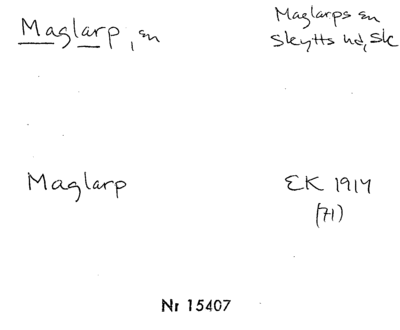 Maglarp, sn
Maglarps sn
Skytts hd, Sk
Maglarp
EK 1914
(71)
Nr 15407